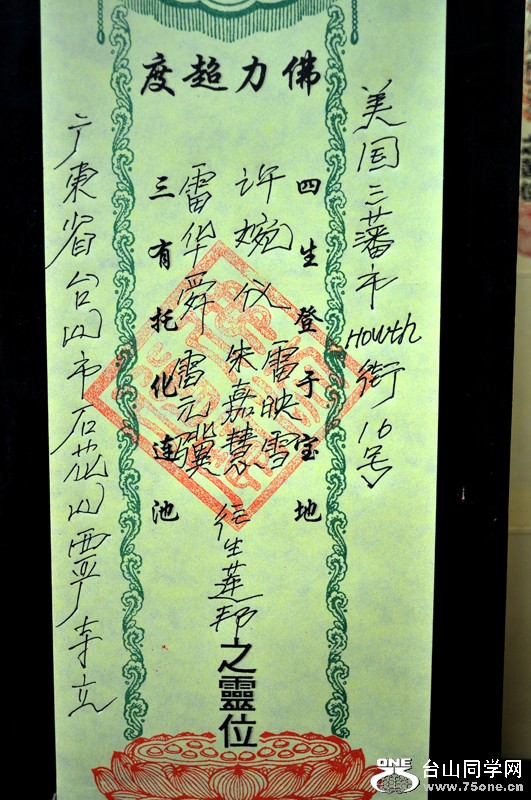 佛力超度
美国三藩市Howth街16号
四生登于宝地
许婉仪
雷映雪
朱嘉慧
雷华舜 雷元骥
往生莲邦之靈位
三有托化连池
广東省台山市石花山西严寺立
ONE 台山同学网
www.75one.cn